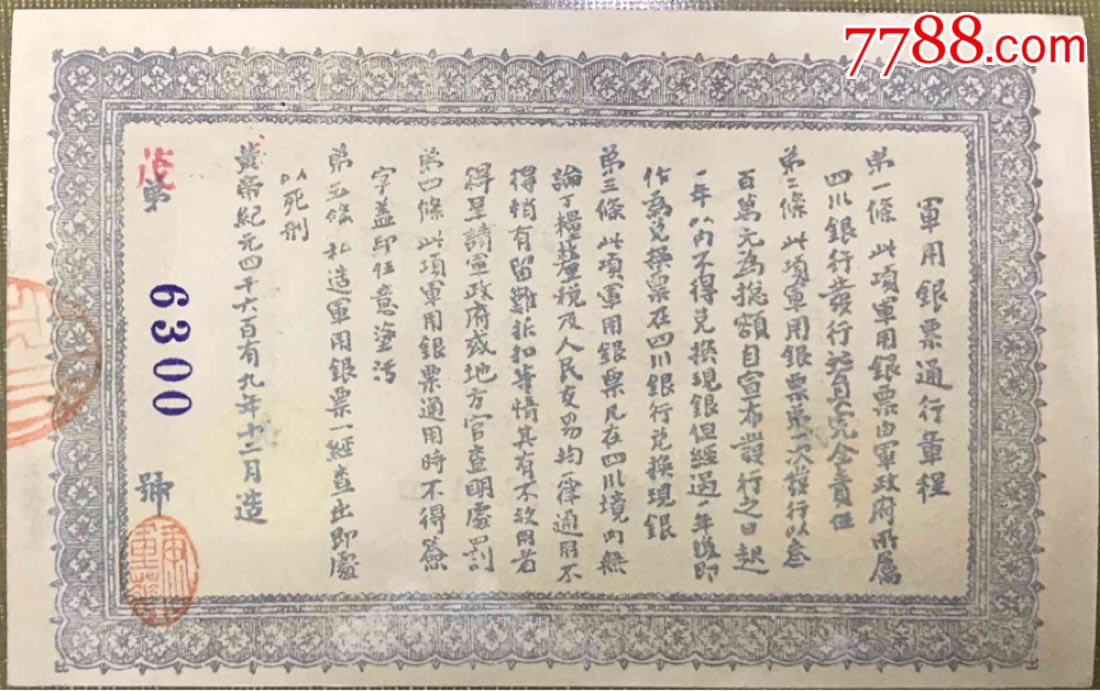 7788.com
軍用銀票通行章程
第一條 此項軍用銀票由軍政府所屬
四川銀行發行 擔負完全責任
第二條 此項軍用銀票第一次發行以叁
百萬元為總額自宣布發行之日起
一年以內不得兌換現銀但經過一年後即
作為兌換票在四川銀行兌換現銀
第三條 此項軍用銀票凡在四川境內無
論丁糧釐稅及人民交易均一律通用不
得稍有留難折扣等情其有不效用者
得呈請軍政府或地方官查明處罰
第四條 此項軍用銀票通用時不得簽
字蓋印任意塗污
第五條 私造軍用銀票一經查出即處
以死刑
黃帝紀元四千六百有九年十二月造
茂
第 6300 號